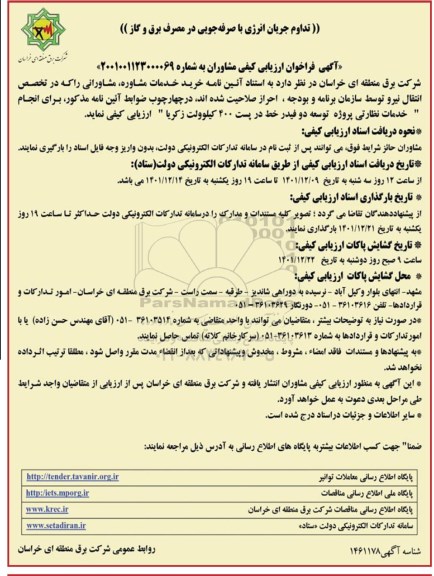 (( تداوم جریان انرژی با صرفه‌جویی در مصرف برق و گاز ))
شرکت برق منطقه ای خراسان
«آگهی فراخوان ارزیابی کیفی مشاوران به شماره ۲۰۰۱۰۰۱۱۲۳۰۰۰۰۶۹»
شرکت برق منطقه ای خراسان در نظر دارد به استناد آئین نامه خرید خدمات مشاوره، مشاورانی راکه در تخصص
انتقال نیرو توسط سازمان برنامه و بودجه ، احراز صلاحیت شده اند، درچهارچوب ضوابط آئین نامه مذکور، برای انجام
" خدمات نظارتی پروژه توسعه دو فیدر خط در پست ۴۰۰ کیلوولت زکریا " ارزیابی کیفی نماید.
*نحوه دریافت اسناد ارزیابی کیفی:
مشاوران حائز شرایط فوق، می توانند پس از ثبت نام در سامانه تدارکات الکترونیکی دولت، بدون واریز وجه فایل اسناد را بارگیری نمایند.
*تاریخ دریافت اسناد ارزیابی کیفی از طریق سامانه تدارکات الکترونیکی دولت(ستاد):
از ساعت ۱۲ روز سه شنبه به تاریخ ۱۴۰۱/۱۲/۰۹ تا ساعت ۱۹ روز یکشنبه به تاریخ ۱۴۰۱/۱۲/۱۴ می باشد.
* تاریخ بارگذاری اسناد ارزیابی کیفی:
از پیشنهاددهندگان تقاضا می گردد ؛ تصویر کلیه مستندات و مدارک را درسامانه تدارکات الکترونیکی دولت حداکثر تا ساعت ۱۹ روز
یکشنبه به تاریخ ۱۴۰۱/۱۲/۲۱ بارگذاری نمایند.
* تاریخ گشایش پاکات ارزیابی کیفی:
ساعت ۹ صبح روز دوشنبه به تاریخ ۱۴۰۱/۱۲/۲۲
* محل گشایش پاکات ارزیابی کیفی:
مشهد- انتهای بلوار وکیل آباد - نرسیده به دوراهی شاندیز - طرقبه - سمت راست - شرکت برق منطقه ای خراسان- امور تدارکات و
قراردادها- تلفن ۳۶۱۰۳۶۱۶ -۰۵۱ دورنگار ۳۶۱۰۳۶۲۹-۰۵۱
*در صورت نیاز به توضیحات بیشتر ، متقاضیان می توانند با واحد متقاضی به شماره ۳۶۱۰۳۵۱۲ -۰۵۱ (آقای مهندس حسن زاده) یا با
امورتدارکات و قراردادها به شماره ۳۶۱۰۳۶۱۳-۰۵۱ (سرکارخانم کلاته) تماس حاصل نمایند.
*به پیشنهادها و مستندات فاقد امضاء ، مشروط ، مخدوش وپیشنهاداتی که بعداز انقضاء مدت مقرر واصل شود ، مطلقا ترتیب اثرداده
نخواهد شد.
* این آگهی به منظور ارزیابی کیفی مشاوران انتشار یافته و شرکت برق منطقه ای خراسان پس از ارزیابی از متقاضیان واجد شرایط
طی مراحل بعدی دعوت به عمل خواهد آورد.
* سایر اطلاعات و جزئیات دراسناد درج شده است.
ضمنا" جهت کسب اطلاعات بیشتربه پایگاه های اطلاع رسانی به آدرس ذیل مراجعه نمایند:
پایگاه اطلاع رسانی معاملات توانیر http://tender.tavanir.org.ir
پایگاه ملی اطلاع رسانی مناقصات http://iets.mporg.ir
پایگاه اطلاع رسانی مناقصات شرکت برق منطقه ای خراسان www.krec.ir
سامانه تدارکات الکترونیکی دولت «ستاد» www.setadiran.ir
شناسه آگهی۱۴۶۱۱۷۸ روابط عمومی شرکت برق منطقه ای خراسان